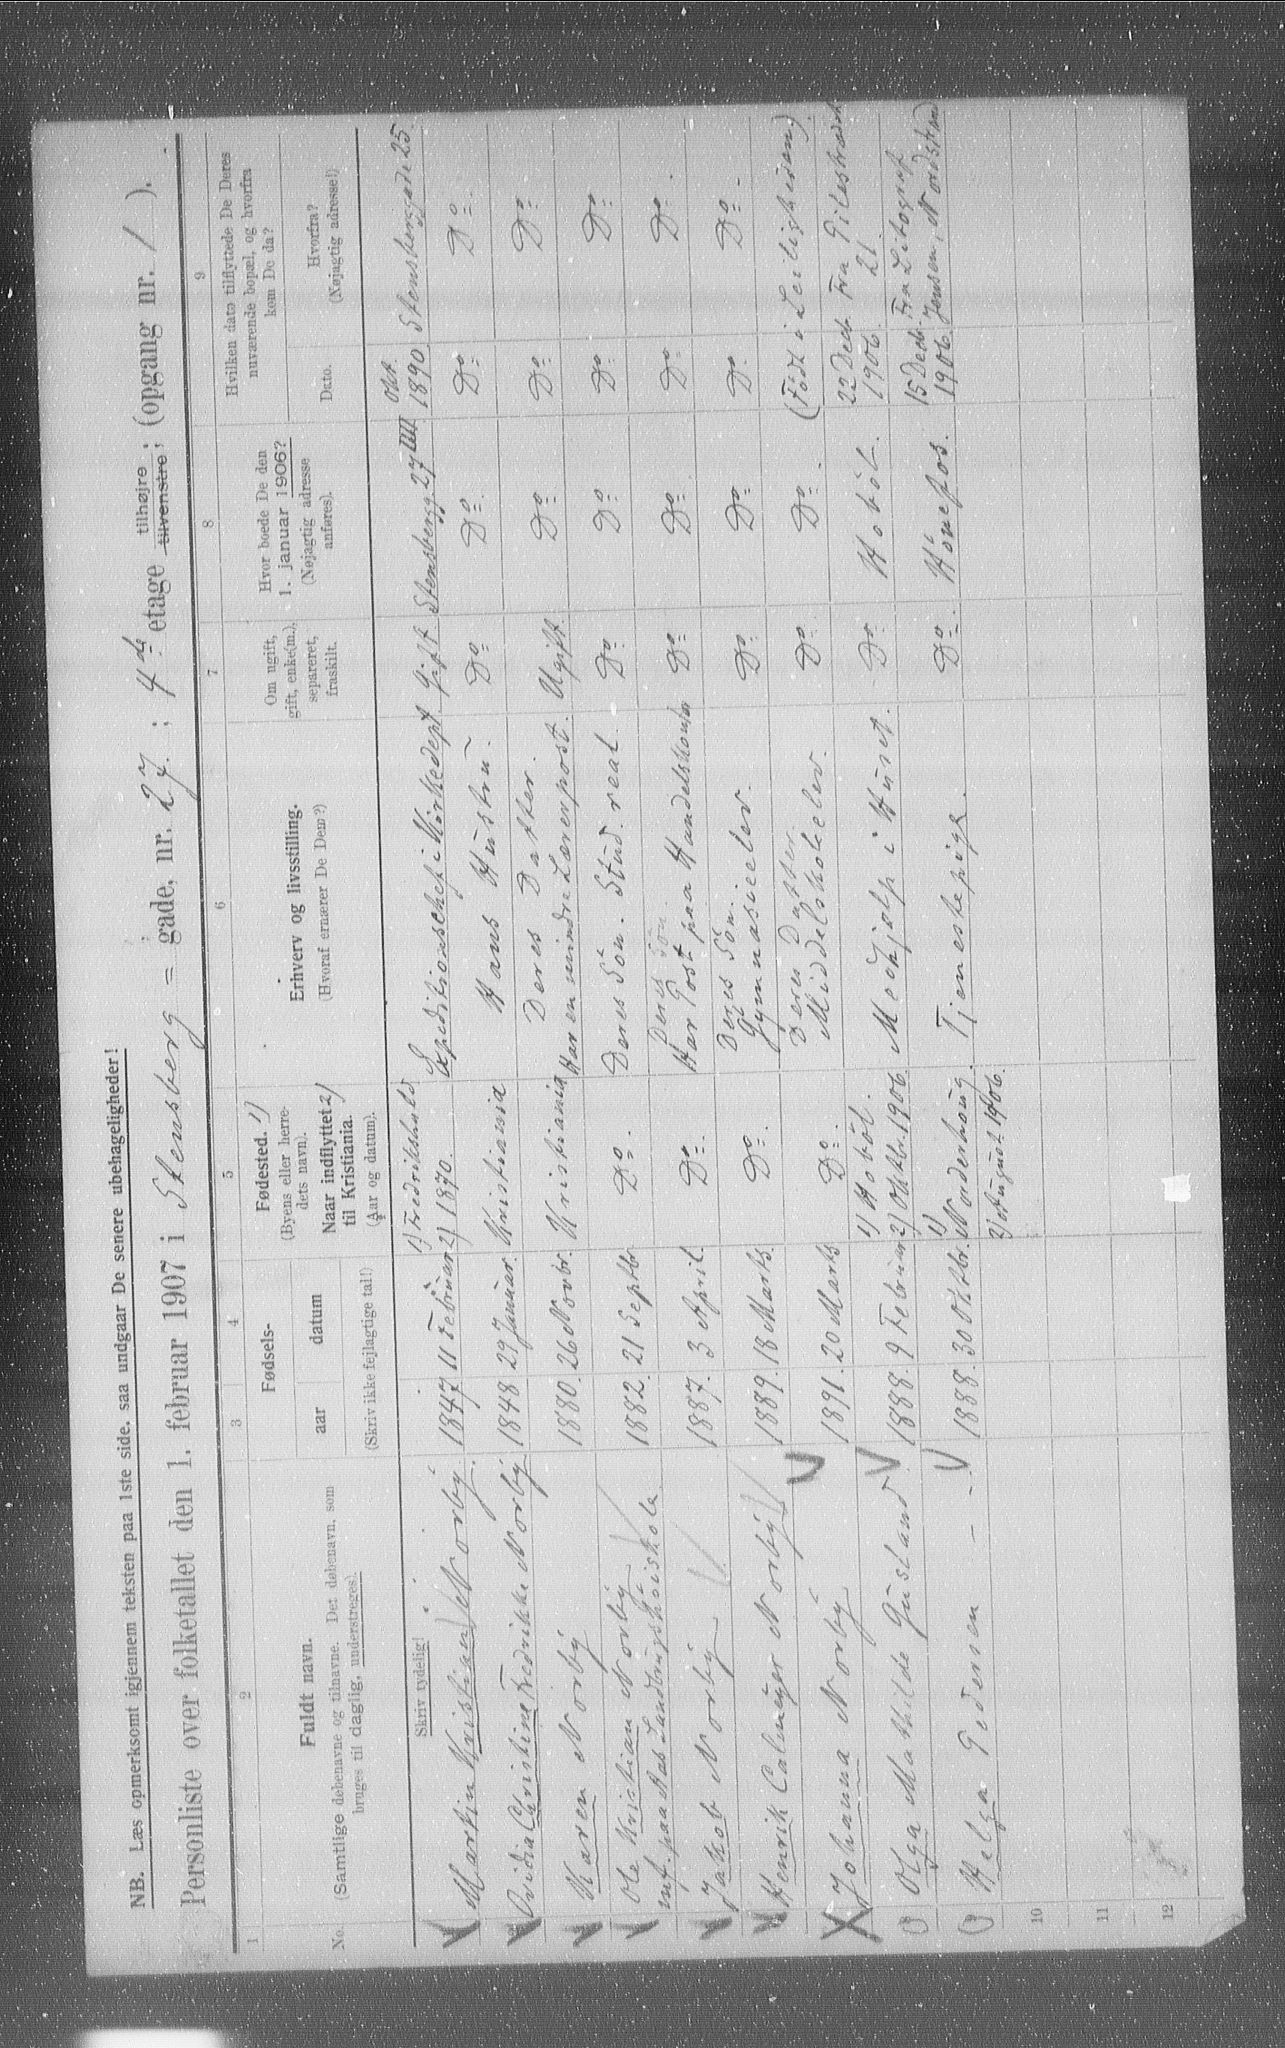 NB. Læs opmerksomt igjennem teksten paa 1ste side, saa undgaar De senere ubehageligheder!
Personliste over folketallet den 1. februar 1907 i Stensberg = gade, nr. 27 ; 4de etage tilhøjre tilvenstre ; (opgang nr. 1 ).
1 2 3 4 5 6 7 8 9
No.
Fuldt navn.
(Samtlige døbenavne og tilnavne. Det døbenavn, som
bruges til daglig, understreges).
Fødsels-
aar datum
(Skriv ikke fejlagtige tal!)
Fødested. 1)
(Byens eller herre-
dets navn).
Naar indflyttet 2)
til Kristiania.
(Aar og datum).
Erhverv og livsstilling.
(Hvoraf ernærer De Dem?)
Om ugift,
gift, enke(m.),
separeret,
fraskilt.
Hvor boede De den
1. januar 1906?
(Nøjagtig adresse
anføres).
Hvilken dato tilflyttede De Deres
nuværende bopæl, og hvorfra
kom De da?
Dato.
Hvorfra?
(Nøjagtig adresse!)
Skriv tydelig!
Martin Kristian Norby 1847 11 Februar 1) Fredrikshald 2) 1870. Expeditionschef i Kirkedept. Gift Stensbergg. 27 IIII Oktr. 1890 Stensberggade 25.
Ovidia Christine Fredrikke Norby 1848 29 Januar. Kristiania Hans Hustru. Do Do Do Do
Karen Norby 1880. 26 Novbr. Kristiania Deres Datter. Har en mindre Lærerpost. Ugift Do Do Do
Ole Kristian Norby 1882. 21 Septbr. Do. Deres Søn. Stud. real. Do Do Do Do
Inf. paa Aas Landbrugshøiskole.
Jakob Norby 1887. 3 April. Do. Deres Søn. Har Post paa Handelskontor Do Do Do Do.
Henrik Calmeyer Norby 1889. 18 Marts. Do. Deres Søn. Gymnasieelev. Do Do Do Do.
Johanna Norby 1891. 20 Marts Do. Deres Datter. Middelskoleelev. Do Do. (Født i Leiligheden)
Olga Mathilde Gusland 1888. 9 Februar 1) Hobøl. 2) Oktbr. 1906. Medhjælp i Huset. Do Hobøl. 22 Decb. 1906. Fra Pilestrædet 21
Helga Pedersen - - 1888. 30 Oktbr. 1) Norderhoug. 2) August 1906. Tjenestepige. Do. Hønefos. 15 Decb. 1906. Fra Litograf Jensen, Nordstrand
10
11
12